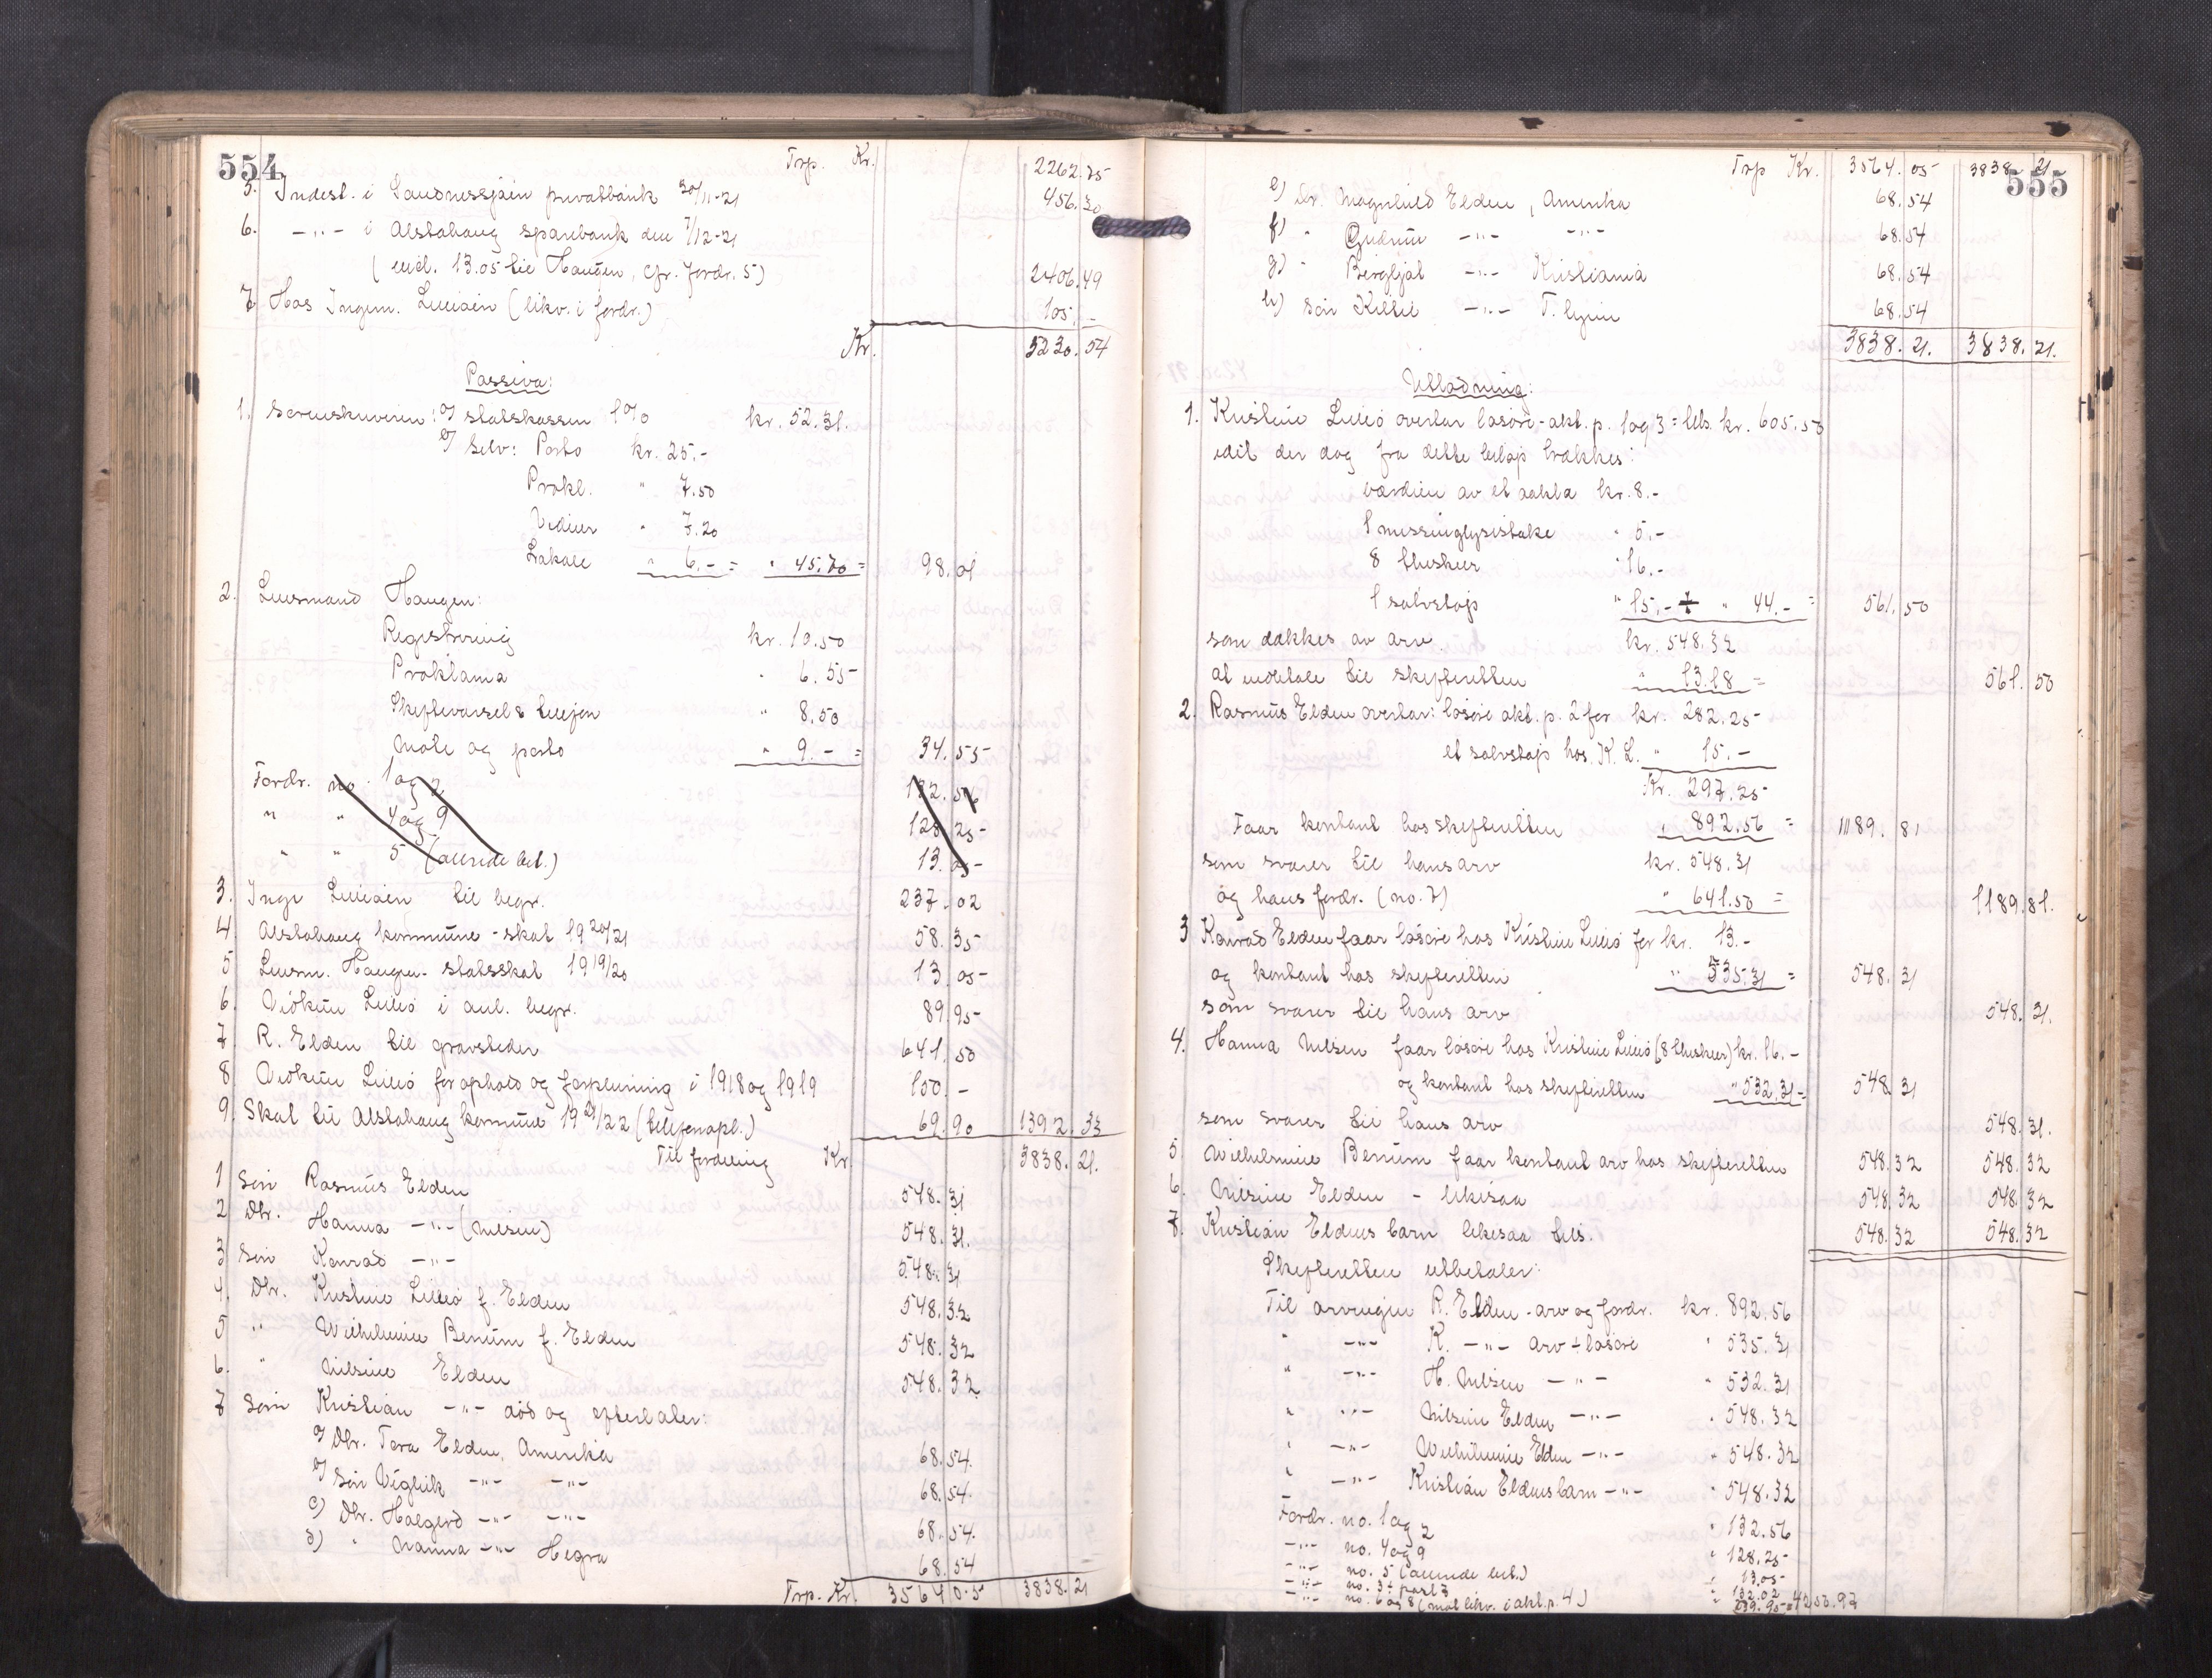 554
Trp. Kr. 2262.75
5. Indest. i Sandnessjøen privatbank 30/11-21 456.30
6. -"- i Alstahaug sparebank den 7/12-21
(incl. 13.05 til Haugen, cfr. fordr. 5) 2406.49
7. Hos Ingem. Lilleøen (likv. i fordr.) 105.-
Kr. 5230.54
Passiva:
1. Sorenskriveren: a) statskassen 1% kr. 52.31.
b) Selv: Porto kr. 25.-
Prokl. " 7.50
Vidner " 7.20
Lokale " 6.- = " 45.70 = 98.01
2. Lensmand Haugen:
Registrering kr. 10.50
Proklama " 6.55
Skiftevarsel & telefon " 8.50
Møte og porto " 9.- = 34.55
Fordr. no. 1 og 2 132.56
" " 4 og 9 128.25
" " 5 (allerede bet.) 13.05
3. Inge Lilleøen til begr. 237.02
4 Alstahaug kommune - skat 1920/21 58.35
5 Lensm. Haugen - statsskat 1919/20 13.05
6. Viökine Lilleö i anl. begr. 89.95
7 R. Elden til gravsteder 641.50
8 Viökine Lilleö for ophold og forpleining i 1918 og 1919 150.-
9. Skat til Alstahaug kommune 1921/22 (telefonopl.) 69.90 1392.33
Til fordeling Kr. 3838.21.
1 Søn Rasmus Elden 548.31
2 Dtr. Hanna -"- (Nilsen) 548.31.
3 Søn Konrad -"- 548.31
4. Dtr. Kristine Lilleö f. Elden 548.32
5 " Wilhelmine Benum f. Elden 548.32
6. " Nilsine Elden 548.32.
7 Søn Kristian -"- død og efterlater:
a) Dtr. Tora Elden, Amerika 68.54.
b) Søn Vigleik -"- -"- 68.54.
c) Dtr. Halgerd -"- -"- 68.54.
d) " Nanna -"- Hegra 68.54
Trp. Kr. 3564 05 3838.21
555
Trp Kr. 3564.05 3838.21
e) Dtr. Magnhild Elden, Amerika 68.54
f) " Gudrun -"- -"- 68.54
g) " Bergljot -"- Kristiania 68.54
h) Søn Kittil -"- 68.54
3838.21. 3838.21.
Utlodning:
1. Kristine Lilleö overtar løsøre - akt. p. 1 og 3 = tils. kr. 605.50
idet der dog fra dette beløp trækkes:
værdien av et aakla kr. 8.-
1 messinglysestake " 5.-
8 theskeer " 16.-
1 sølvstøp " 15.- ÷ " 44.- = 561.50
som dækkes av arv kr. 548.32
at indbetale til skifteretten " 13.18 = 561.50
2. Rasmus Elden overtar: løsøre akt. p. 2 for kr. 282.25
et sølvstøp hos K. L. " 15.-
Kr. 297.25
Faar kontant hos skifteretten " 892.56 = 1189.81
som svarer til hans arv kr. 548.31
og hans fordr. (no. 7) " 641.50 = 1189.81.
3 Konrad Elden faar løsøre hos Kristine Lilleö for kr. 13.-
og kontant hos skifteretten " 535.31 = 548.31
som svarer til hans arv 548.31.
4. Hanna Nilsen faar løsøre hos Kristine Lilleö (8 theskeer) kr. 16.-
og kontant hos skifteretten " 532.31 = 548.31
som svarer til hans arv 548.31.
5 Wilhelmine Benum faar kontant arv hos skifteretten 548.32 548.32
6. Nilsine Elden - likesaa 548.32 548.32
7. Kristian Eldens barn likesaa tils. 548.32 548.32
Skifteretten utbetaler:
Til arvingen R. Elden - arv og fordr. kr. 892.56
" -"- K. -"- arv ÷ løsøre " 535.31
" -"- H. Nilsen -"- " 532.31
" -"- Nilsine Elden -"- " 548.32
" -"- Wilhelmine Elden -"- " 548.32
" -"- Kristian Eldens barn -"- " 548.32
Fordr. no. 1 og 2 " 132.56
-"- no. 4 og 9 " 128.25
-"- no. 5 (allerede bet.) " 13.05
-"- no. 3 ÷ post 7 " 132.02
-"- no. 6 og 8 (mot likv. i akt. p. 4) " 239.95 = 4250.97